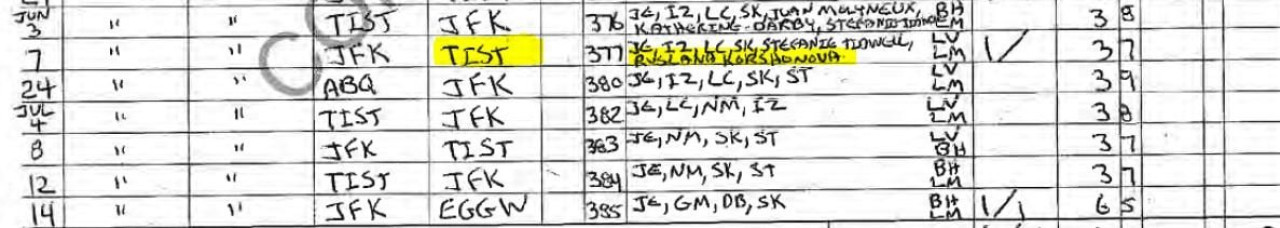 JUN
3 " " TIST JFK 376 JE, IZ, LC, SK, JUAN MOLYNEUX, BH
KATHERINE DARBY, LM 3 8
7 " " JFK TIST 377 JE, IZ, LC, SK, STEFANIE LV 1/ 3 7
RUSLANA KORSHONOVA LM
24 " " ABQ JFK 380 JE, IZ, LC, SK, ST LV LM 3 9
JUL
4 " " TIST JFK 382 JE, LC, NM, IZ LV LM 3 8
8 " " JFK TIST 383 JE, NM, SK, ST LV BH 3 7
12 " " TIST JFK 384 JE, NM, SK, ST BH LM 3 7
14 " " JFK EGGW 385 JE, GM, DB, SK BH LM 1/1 6 5